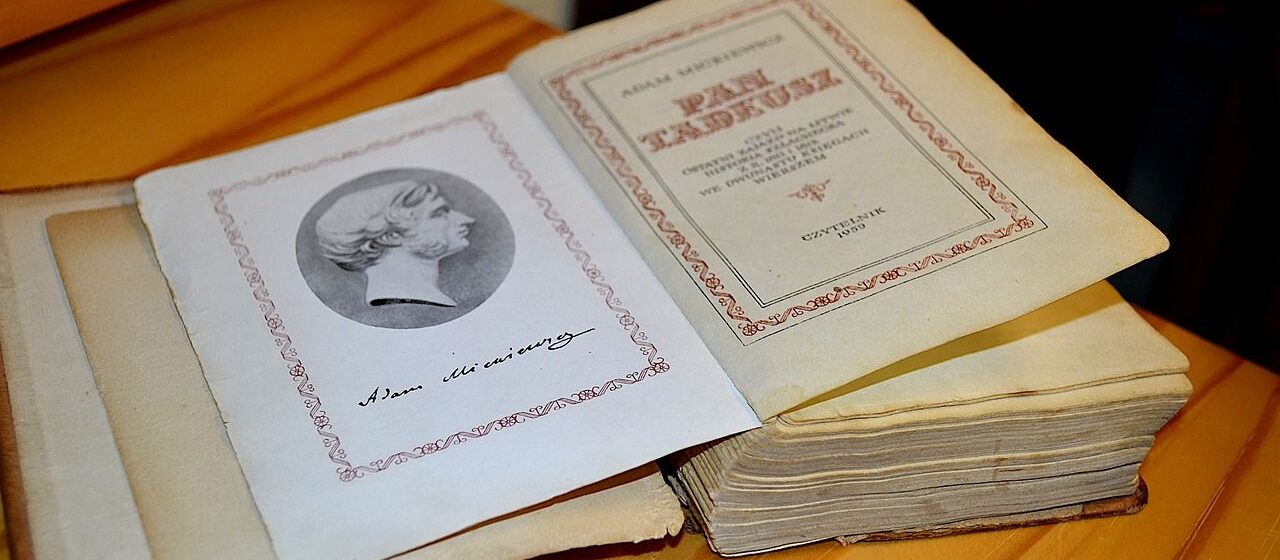 Adam Mickiewicz
ADAM MICKIEWICZ
PAN
TADEUSZ
CZYLI
OSTATNI ZAJAZD NA LITWIE
HISTORIA SZLACHECKA
Z R. 1811 I 1812
WE DWUNASTU KSIĘGACH
WIERSZEM
CZYTELNIK
1959